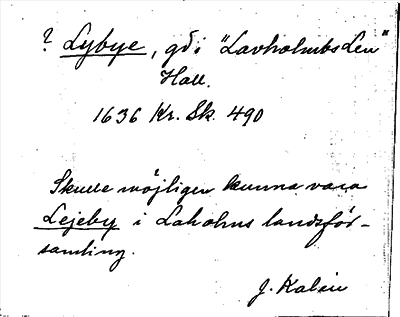 ? Lybye, gd i "Lavholmbs Len"
Hall.
1636 Kr. Sk. 490
Skulle möjligen kunna vara
Lejeby i Laholms landsför-
samling.
J. Kalén